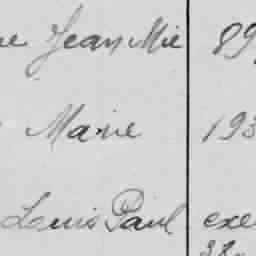 Jean Mie 89
Marie 193
Louis Paul exe
38